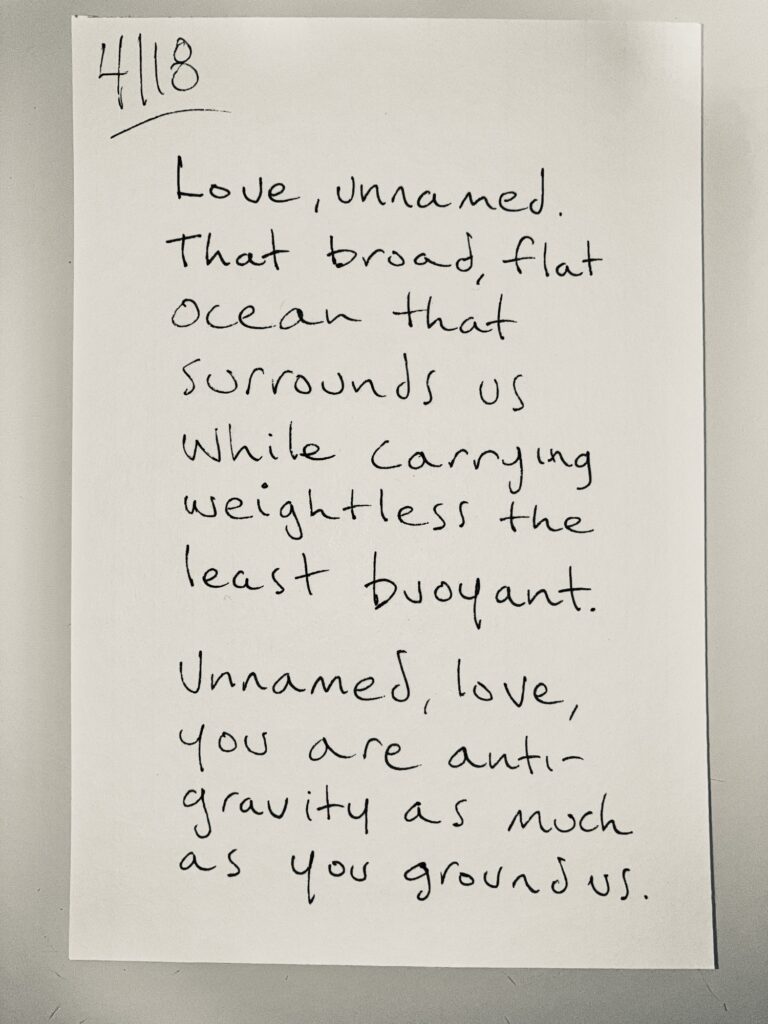 4/18
Love, unnamed.
That broad, flat
ocean that
surrounds us
while carrying
weightless the
least buoyant.
Unnamed, love,
you are anti-
gravity as much
as you ground us.